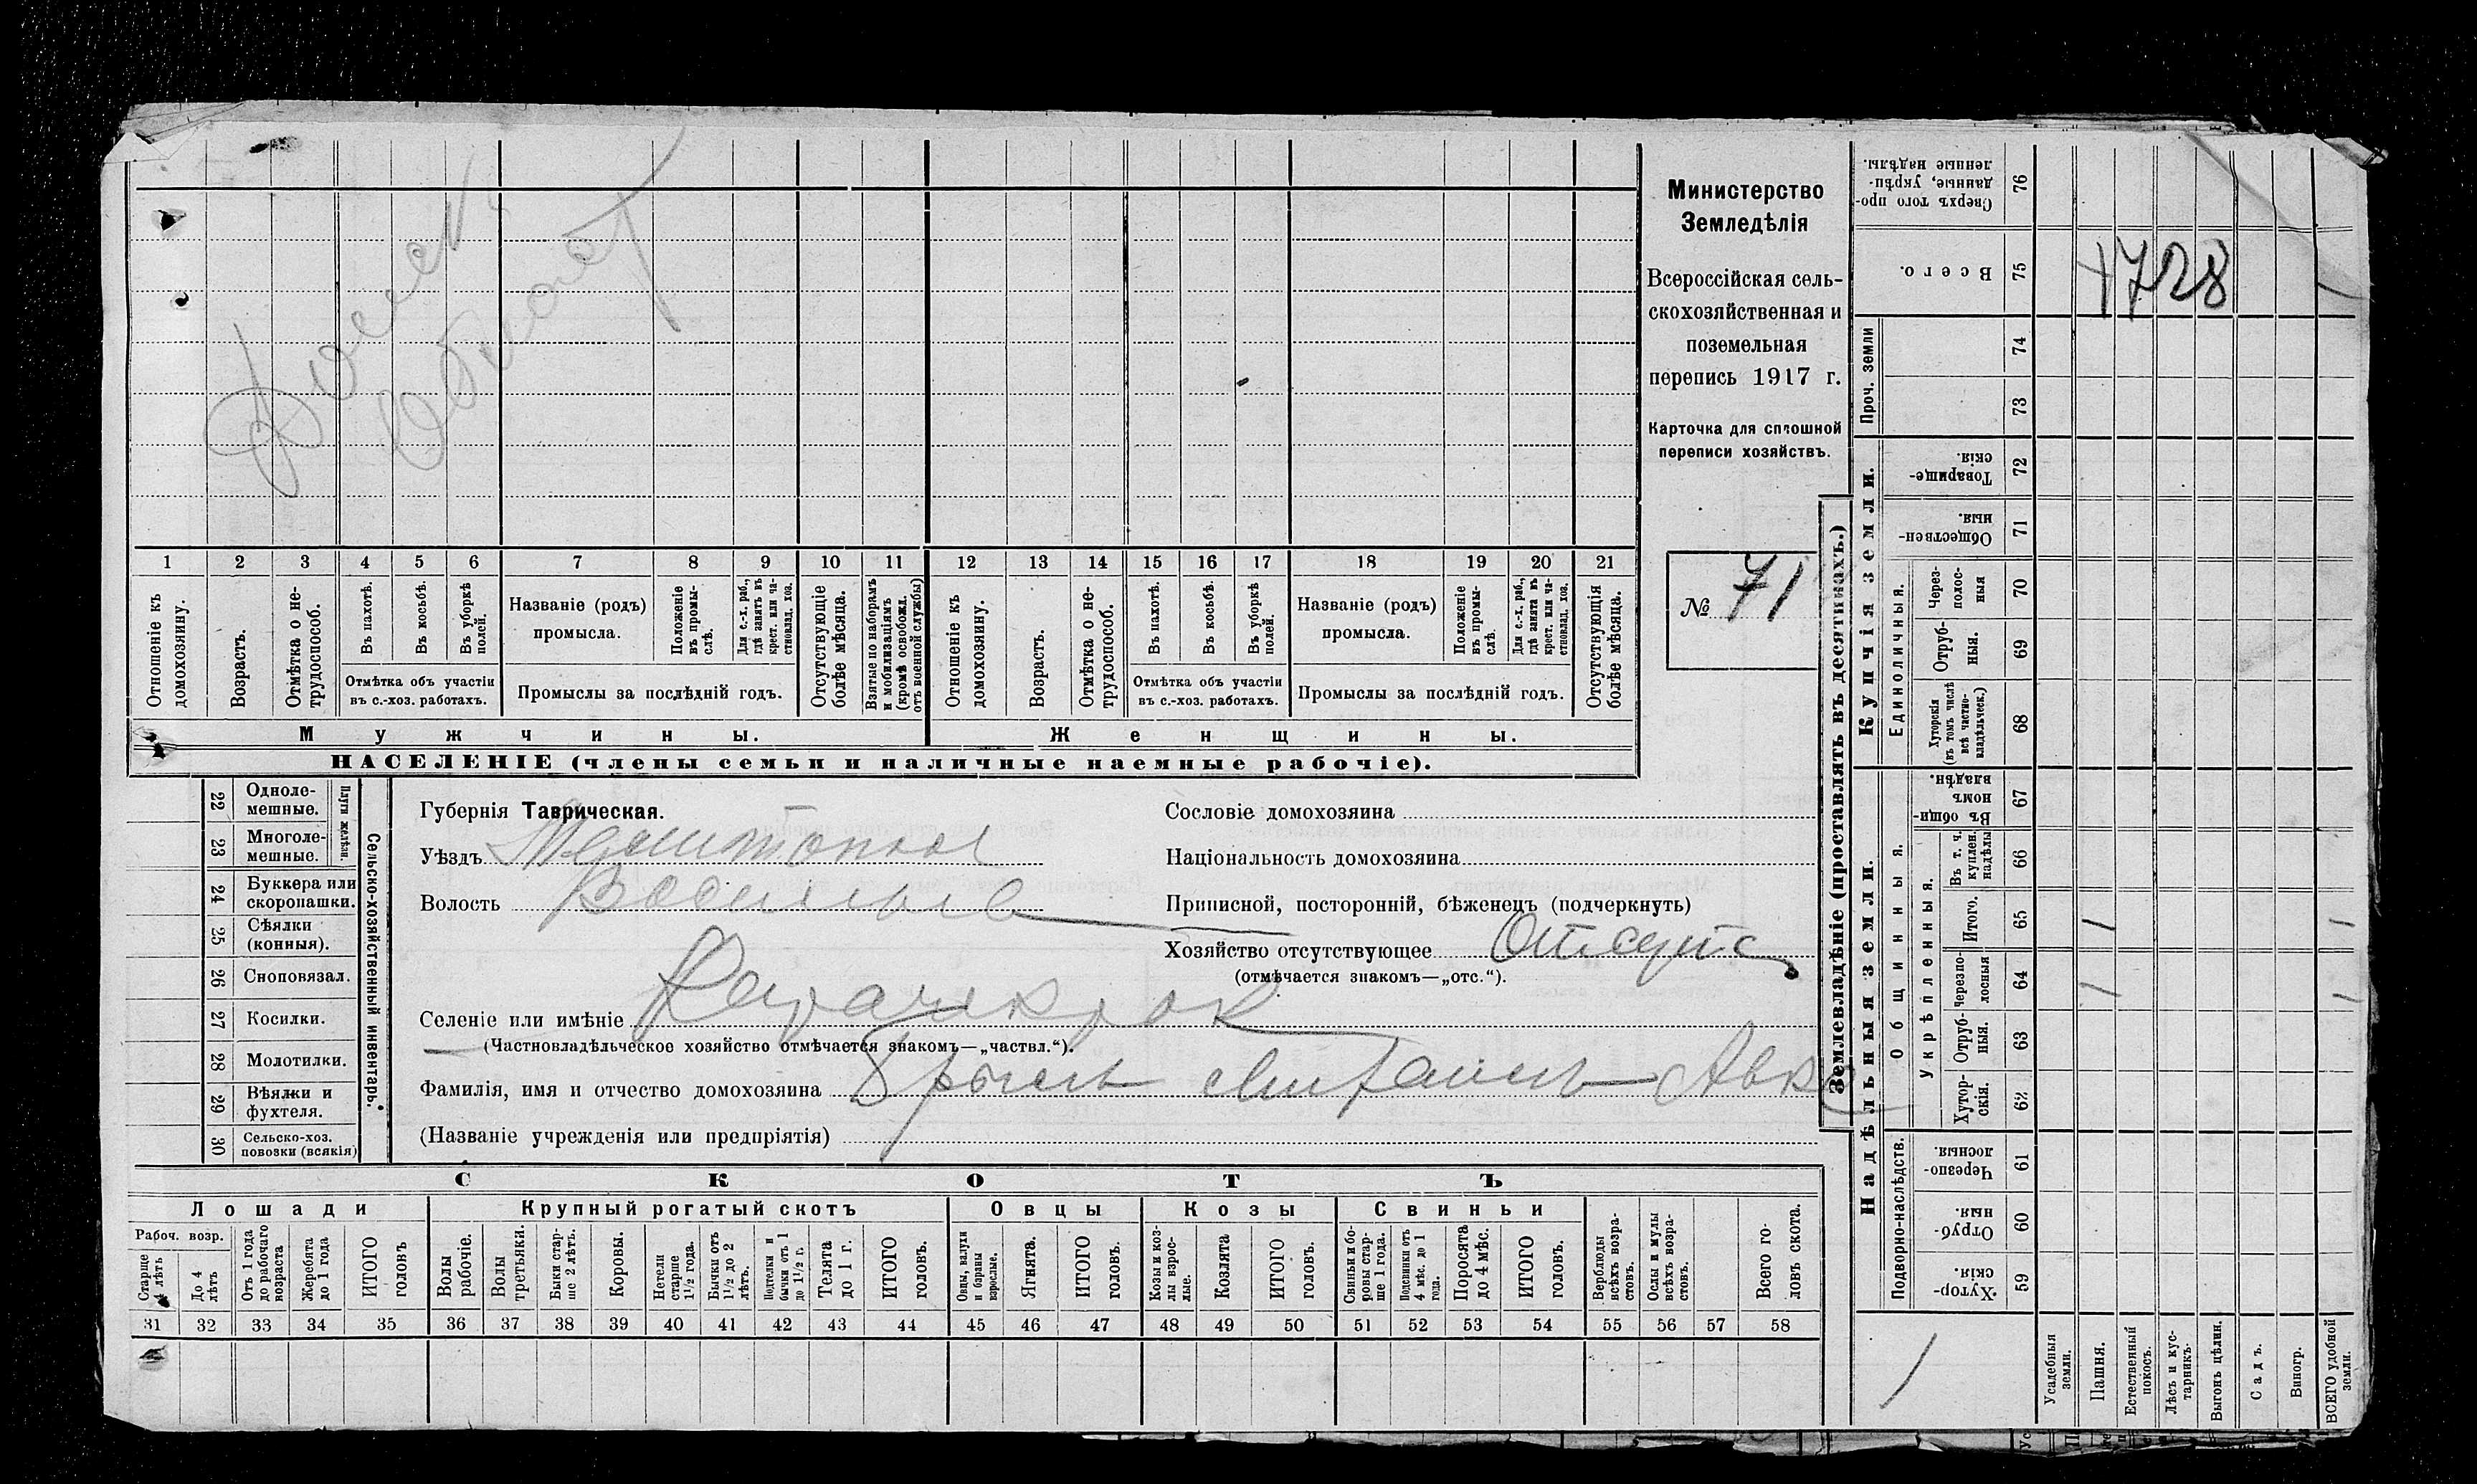 Министерство
Земледѣлія
Всероссійская сель-
скохозяйственная и
поземельная
перепись 1917 г.
Карточка для сплошной
переписи хозяйствъ.
№ 71
1 2 3 4 5 6 7 8 9 10 11 12 13 14 15 16 17 18 19 20 21
Отношеніе къ домохозяину.
Возрастъ.
Отмѣтка о не-трудоспособ.
Въ пахотѣ.
Въ косьбѣ.
Въ уборкѣ полей.
Отмѣтка объ участіи
въ с.-хоз. работахъ.
Названіе (родъ)
промысла.
Положеніе въ промы-слѣ.
Для с.-х. раб., гдѣ занятъ въ крест. или ча-стновлад. хоз.
Промыслы за послѣдній годъ.
Отсутствующіе болѣе мѣсяца.
Взятые по наборамъ и мобилизаціямъ (кромѣ освобожд. отъ военной службы)
Отношеніе къ домохозяину.
Возрастъ.
Отмѣтка о не-трудоспособ.
Въ пахотѣ.
Въ косьбѣ.
Въ уборкѣ полей.
Отмѣтка объ участіи
въ с.-хоз. работахъ.
Названіе (родъ)
промысла.
Положеніе въ промы-слѣ.
Для с.-х. раб., гдѣ занята въ крест. или ча-стновлад. хоз.
Промыслы за послѣдній годъ.
Отсутствующія болѣе мѣсяца.
Мужчины.
Женщины.
НАСЕЛЕНІЕ (члены семьи и наличные наемные рабочіе).
22 Одноле-мешные.
23 Многоле-мешные.
Плуги желѣзн.
24 Буккера или скоропашки.
25 Сѣялки (конныя).
26 Сноповязал.
27 Косилки.
28 Молотилки.
29 Вѣялки и фухтеля.
30 Сельско-хоз. повозки (всякія)
Сельско-хозяйственный инвентарь.
Губернія Таврическая.
Уѣздъ
Волость
Сословіе домохозяина
Національность домохозяина
Приписной, посторонній, бѣженецъ (подчеркнуть)
Хозяйство отсутствующее Отсутс
(отмѣчается знакомъ—„отс.“).
Селеніе или имѣніе Карачекрак
(Частновладѣльческое хозяйство отмѣчается знакомъ—„частвл.“).
Фамилія, имя и отчество домохозяина
(Названіе учрежденія или предпріятія)
СКОТЪ
Лошади
Крупный рогатый скотъ
Овцы
Козы
Свиньи
Рабоч. возр.
Старше 4 лѣтъ
До 4 лѣтъ
Отъ 1 года до рабочаго возраста
Жеребята до 1 года
ИТОГО головъ
Волы рабочіе.
Волы третьяки.
Быки стар-ше 2 лѣтъ.
Коровы.
Нетели старше 1½ года.
Бычки отъ 1½ до 2 лѣтъ.
Подтелки и бычки отъ 1 до 1½ г.
Телята до 1 г.
ИТОГО головъ.
Овцы, валухи и бараны взрослые.
Ягнята.
ИТОГО головъ.
Козы и коз-лы взрос-лые.
Козлята
ИТОГО головъ.
Свиньи и бо-ровы стар-ше 1 года.
Подсвинки отъ 4 мѣс. до 1 года.
Поросята до 4 мѣс.
ИТОГО головъ.
Верблюды всѣхъ возра-стовъ.
Ослы и мулы всѣхъ возра-стовъ.
Всего го-ловъ скота.
31 32 33 34 35 36 37 38 39 40 41 42 43 44 45 46 47 48 49 50 51 52 53 54 55 56 57 58
Землевладѣніе (проставлять въ десятинахъ.)
Купчія земли.
Надѣльныя земли.
Проч. земли
Единоличныя.
Общинныя.
Укрѣпленныя.
Подворно-наслѣдств.
76 Сверхъ того про-данные, укрѣп-ленные надѣлы.
75 Всего.
1728
74
73
72 Товарище-скія.
71 Обществен-ныя.
70 Через-полос-ныя
69 Отруб-ныя.
68 Хуторскія (въ томъ числѣ всѣ частно-владѣльческ.)
67 Въ общи-номъ владѣн.
66 Въ т. ч. куплен. надѣлы
65 Итого.
64 Черезпо-лосныя
63 Отруб-ныя.
62 Хутор-скія.
61 Черезпо-лосныя.
60 Отруб-ныя.
59 Хутор-скія.
Усадебныя земли.
Пашня.
Естественный покосъ.
Лѣсъ и кус-тарникъ.
Выгонъ цѣлин.
Садъ.
Виногр.
ВСЕГО удобной земли.